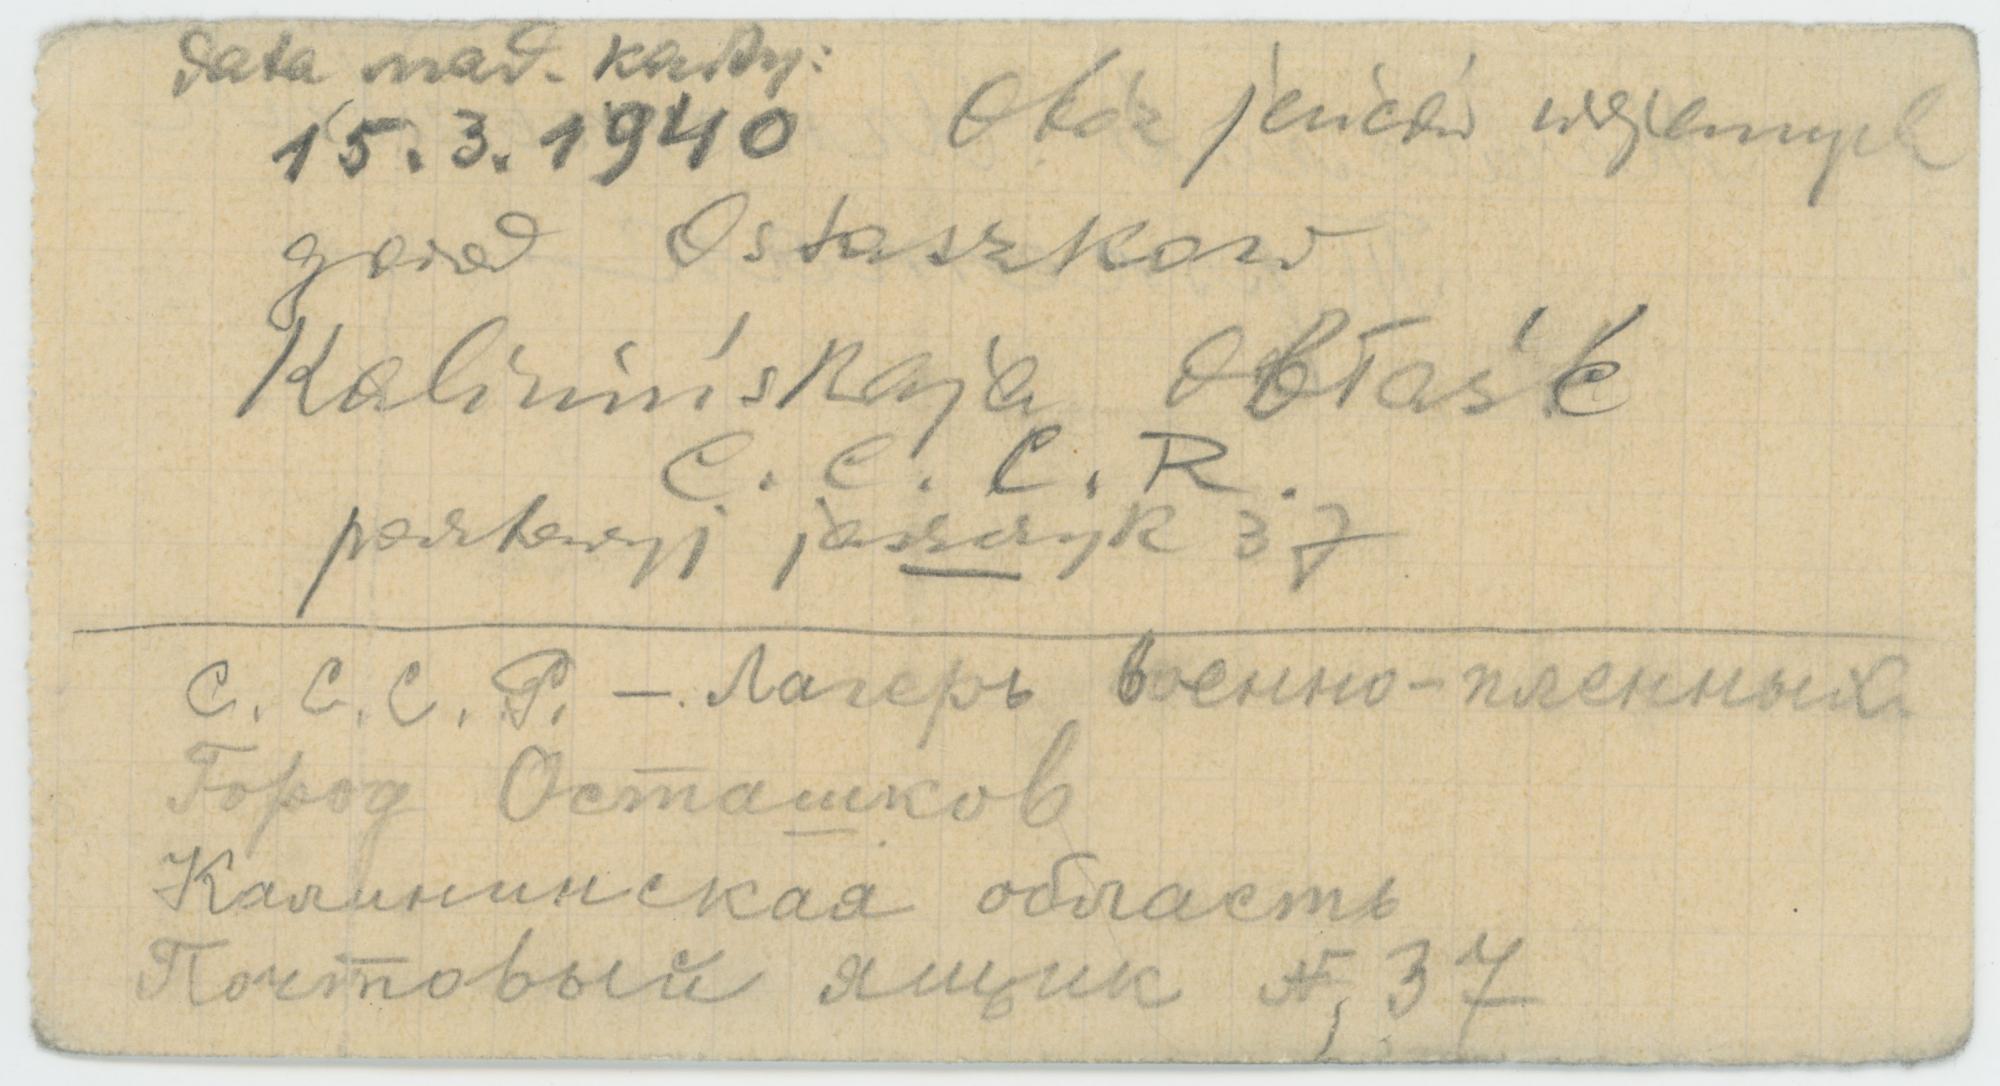 Data nad. karty:
15.3.1940 Obóz jeńców wojennych
gorod Ostaszkow
Kalinińskaja Obłaść
C. C. C. R.
pocztowyj jaszczyk 37
С. С. С. Р. — Лагерь военно-пленных
Город Осташков
Калининская область
Почтовый ящик №, 37